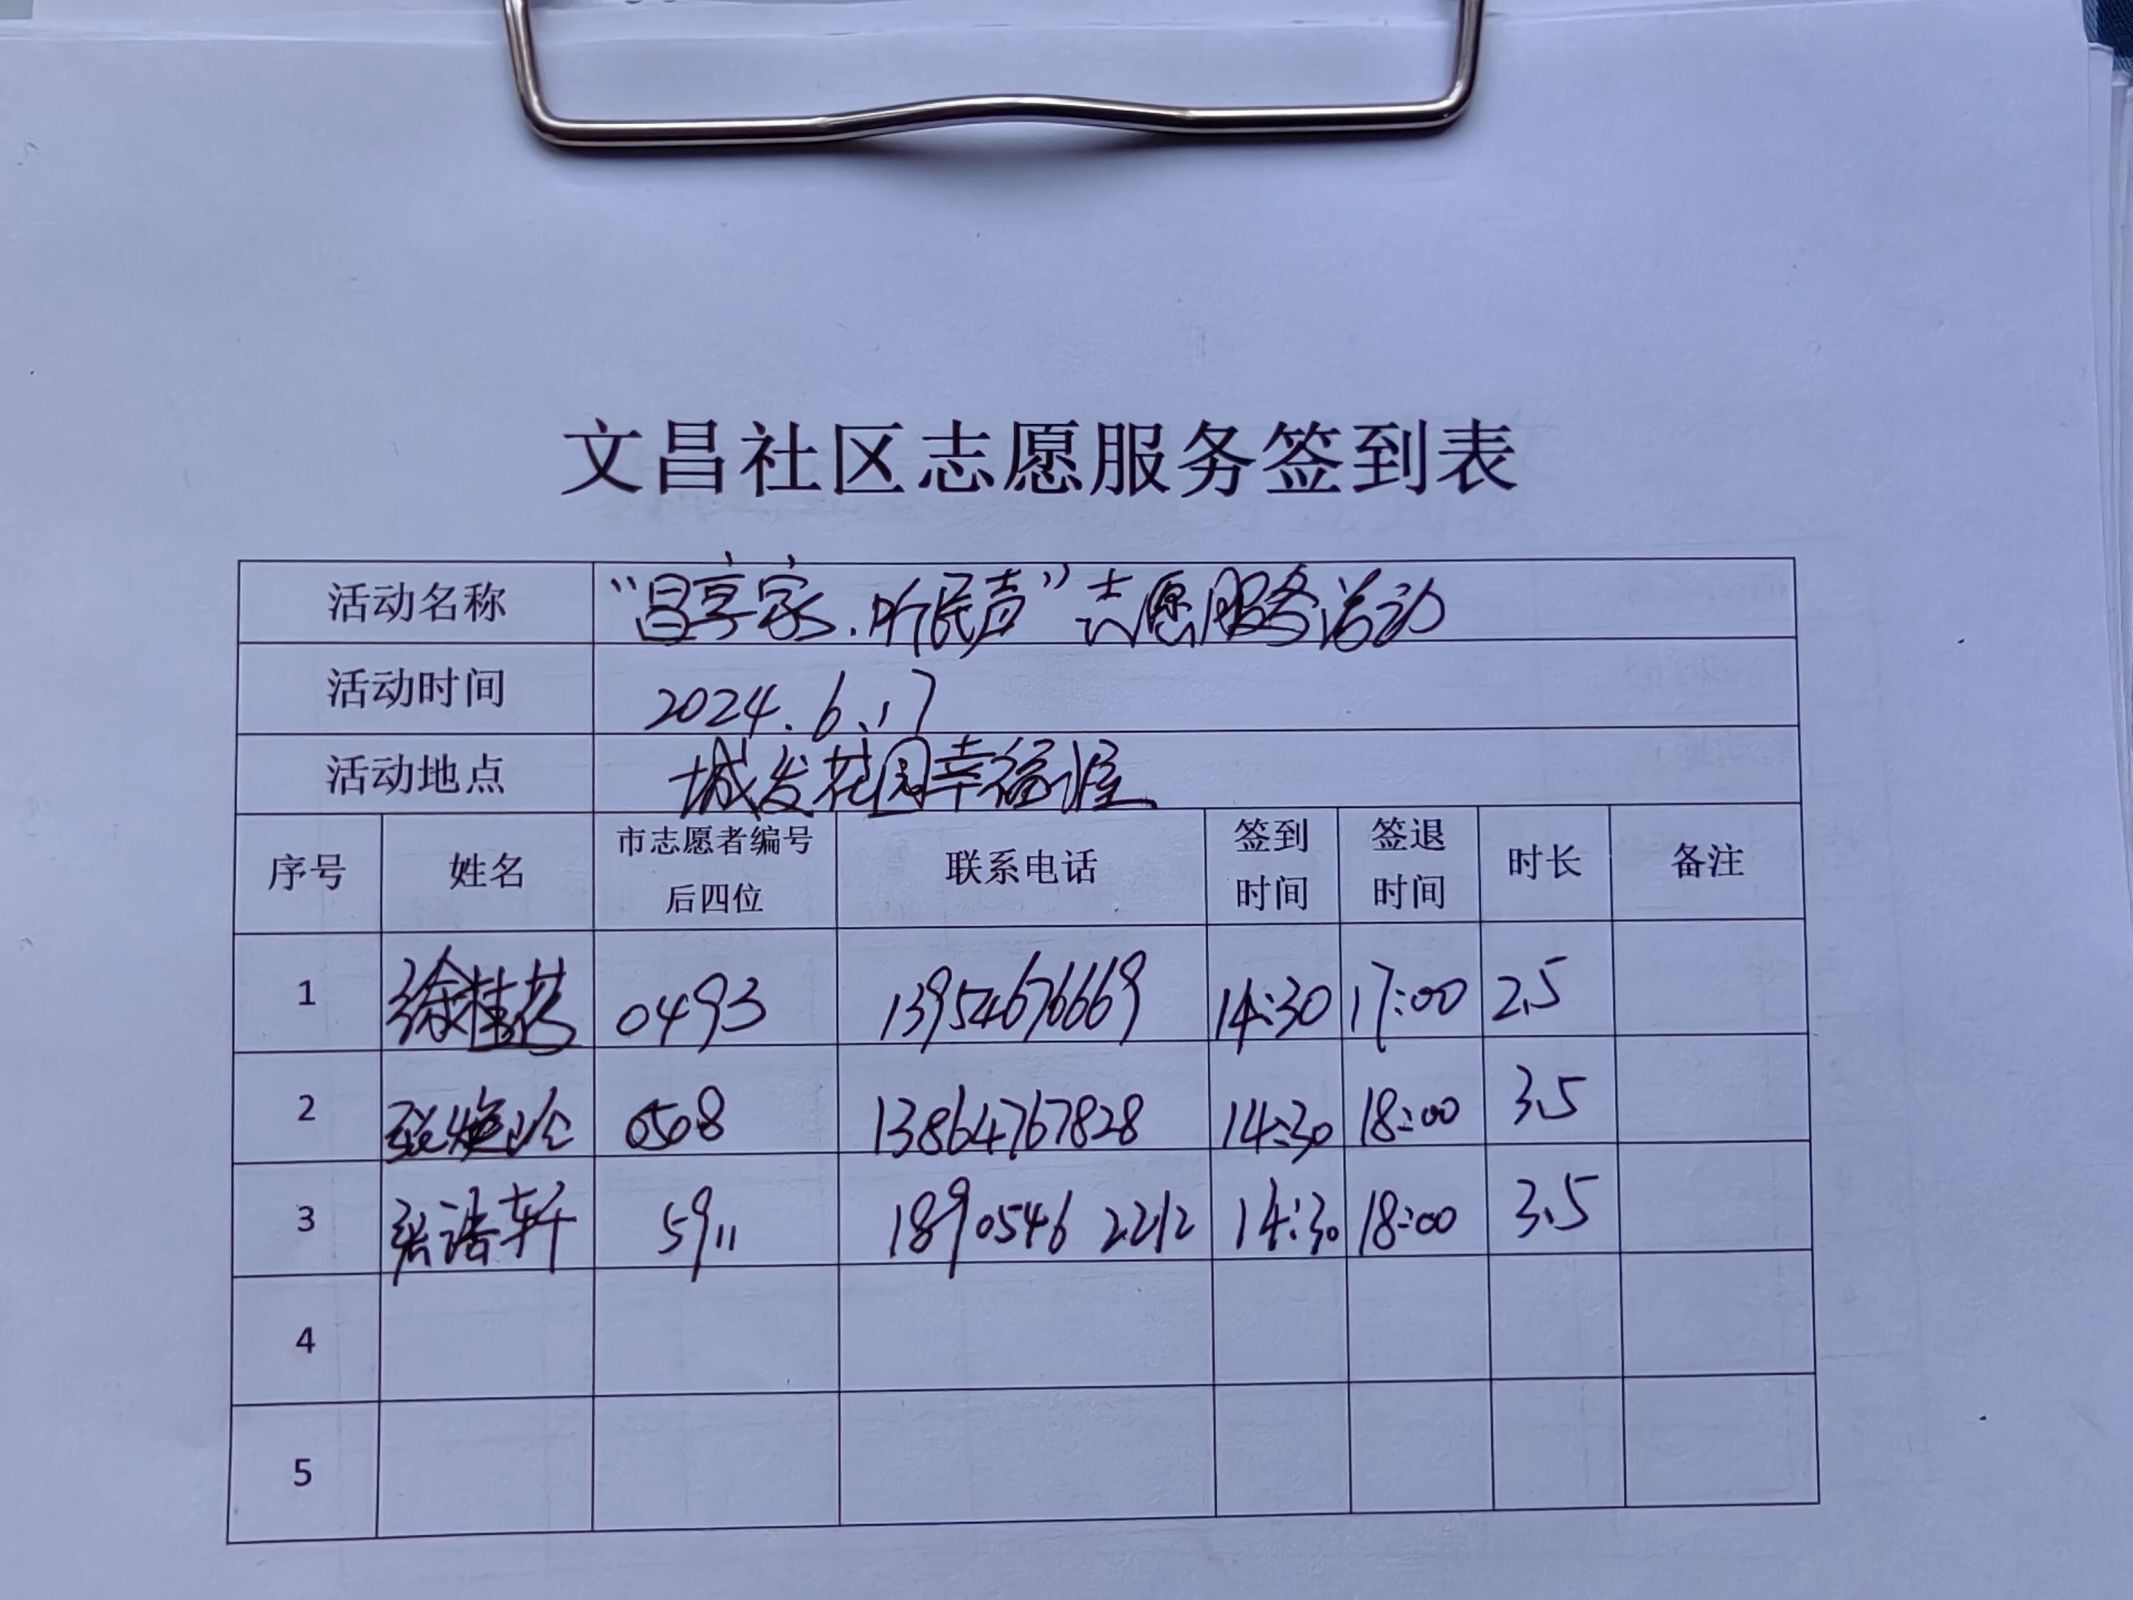 文昌社区志愿服务签到表
活动名称 “昌享家、听民声”志愿服务活动
活动时间 2024.6.17
活动地点 城发花园幸福渥
序号 姓名 市志愿者编号后四位 联系电话 签到时间 签退时间 时长 备注
1 徐桂芬 0493 13954676669 14:30 17:00 2.5
2 0508 13864767828 14:30 18:00 3.5
3 张浩轩 5911 18905462212 14:30 18:00 3.5
4
5